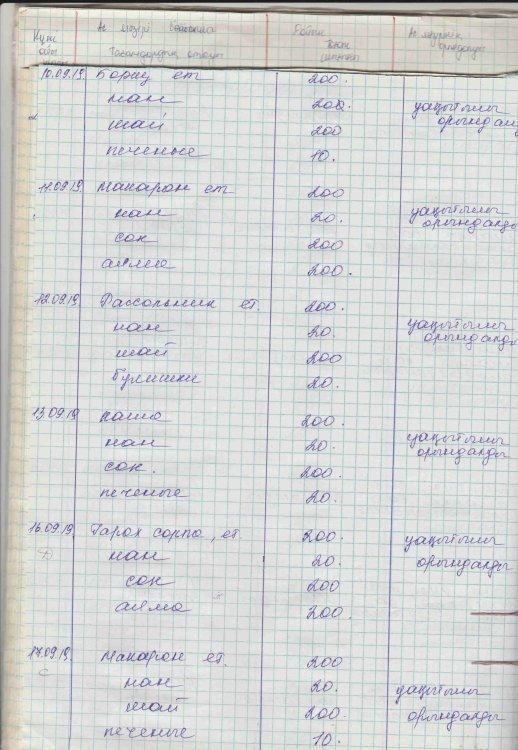 Күні Ас мәзірі бойынша Бөлім Ас мәзірінің
айы Тағамдардың атауы орындалуы
10.09.19. Борщ ет 200.
нан 200. уақытылы
шай 200 орындалд
печенье 10.
11.09.19 Макарон ет 200
нан 20. уақытылы
сок 200 орындалды
алма 200.
12.09.19 Рассольник ет. 200.
нан 20. уақытылы
шай 200 орындалды
булишки 20.
13.09.19 каша 200.
нан 20. уақытылы
сок. 200. орындалды
печенье 20.
16.09.19. Горох сорпа, ет. 200. уақытылы
нан 20. орындалды
сок 200
алма 200.
17.09.19. Макарон ет. 200
нан 20. уақытылы
шай 200. орындалды
печенье 10.